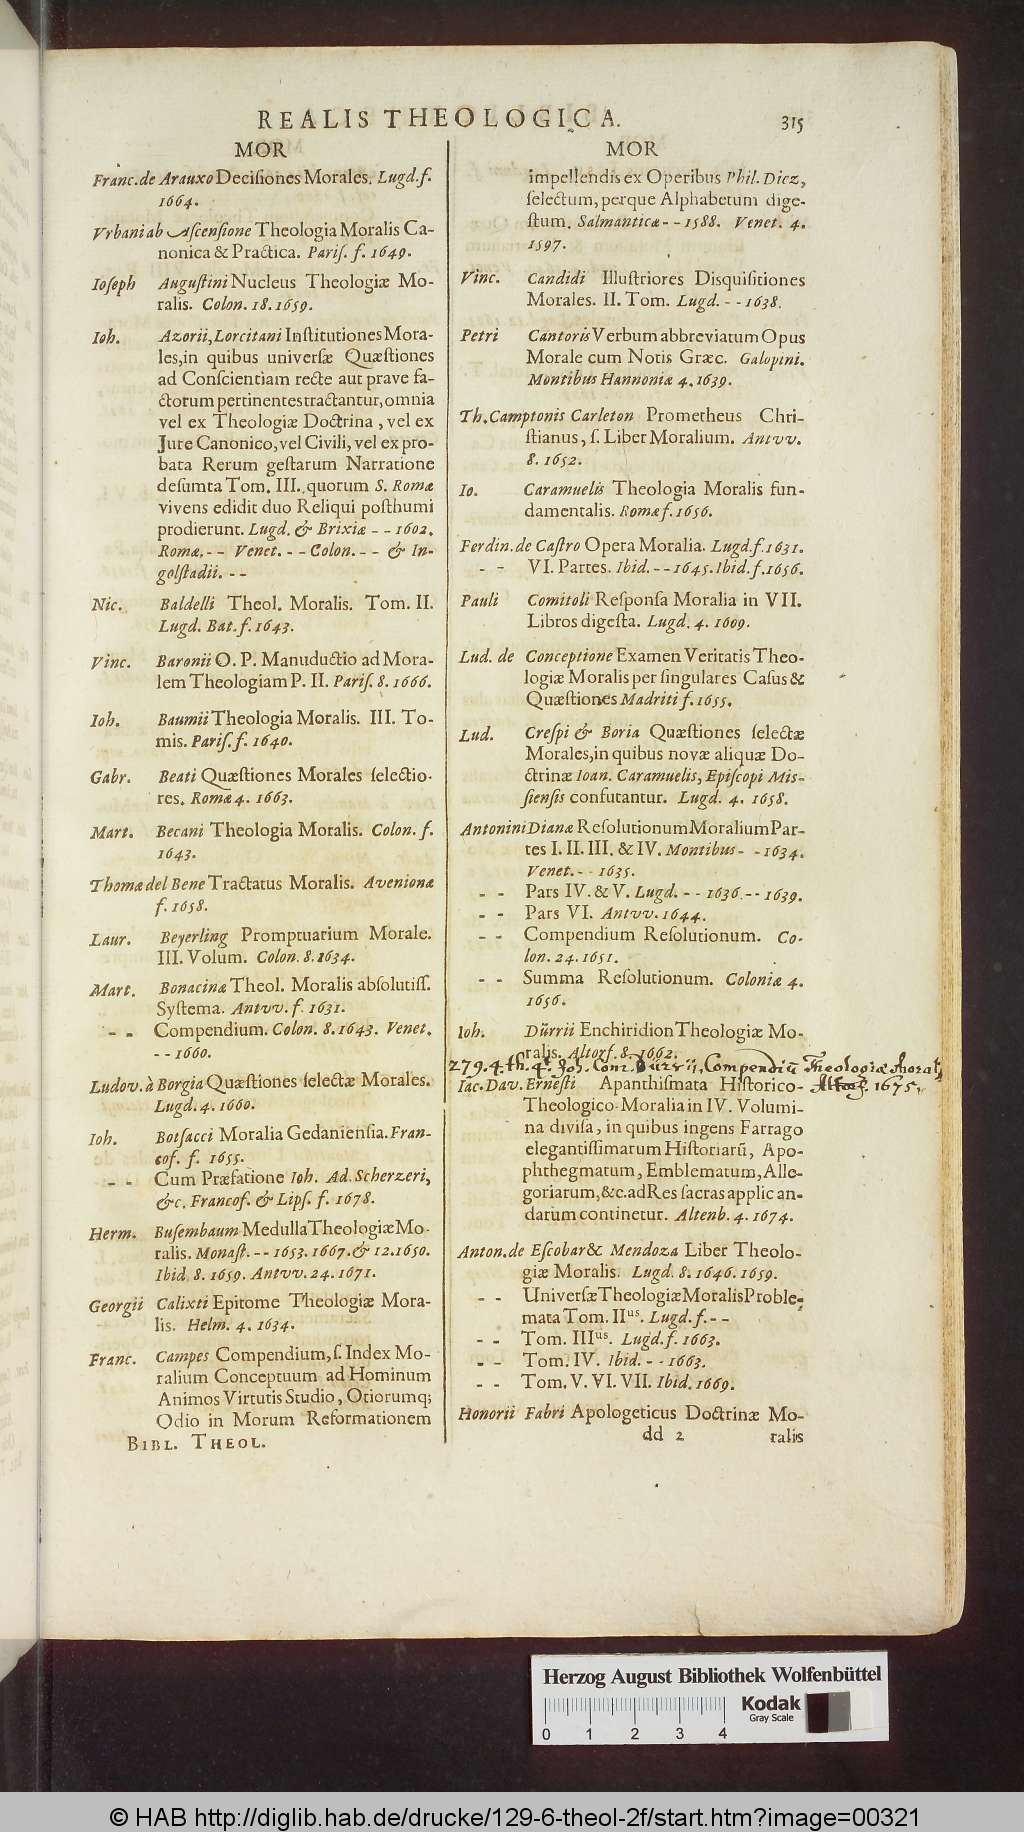 REALIS THEOLOGICA. 315
MOR
Franc. de Arauxo Decisiones Morales. Lugd. f.
1664.
Vrbani ab Ascensione Theologia Moralis Ca-
nonica & Practica. Paris. f. 1649.
Ioseph Augustini Nucleus Theologiæ Mo-
ralis. Colon. 18. 1659.
Ioh. Azorii, Lorcitani Institutiones Mora-
les, in quibus universæ Quæstiones
ad Conscientiam recte aut prave fa-
ctorum pertinentes tractantur, omnia
vel ex Theologiæ Doctrina, vel ex
Jure Canonico, vel Civili, vel ex pro-
bata Rerum gestarum Narratione
desumta Tom. III. quorum S. Romæ
vivens edidit duo Reliqui posthumi
prodierunt. Lugd. & Brixiæ - - 1602.
Romæ. - - Venet. - - Colon. - - & In-
golstadii. - -
Nic. Baldelli Theol. Moralis. Tom. II.
Lugd. Bat. f. 1643.
Vinc. Baronii O. P. Manuductio ad Mora-
lem Theologiam P. II. Paris. 8. 1666.
Ioh. Baumii Theologia Moralis. III. To-
mis. Paris. f. 1640.
Gabr. Beati Quæstiones Morales selectio-
res. Romæ 4. 1663.
Mart. Becani Theologia Moralis. Colon. f.
1643.
Thomæ del Bene Tractatus Moralis. Avenionæ
f. 1658.
Laur. Beyerling Promptuarium Morale.
III. Volum. Colon. 8. 1634.
Mart. Bonacinæ Theol. Moralis absolutiss.
Systema. Antvv. f. 1631.
- - Compendium. Colon. 8. 1643. Venet.
- - 1660.
Ludov. à Borgia Quæstiones selectæ Morales.
Lugd. 4. 1660.
Ioh. Botsacci Moralia Gedaniensia. Fran-
cof. f. 1655.
- - Cum Præfatione Ioh. Ad. Scherzeri,
&c. Francof. & Lips. f. 1678.
Herm. Busembaum Medulla Theologiæ Mo-
ralis. Monast. - - 1653. 1667. & 12. 1650.
Ibid. 8. 1659. Antvv. 24. 1671.
Georgii Calixti Epitome Theologiæ Mora-
lis. Helm. 4. 1634.
Franc. Campes Compendium, s. Index Mo-
ralium Conceptuum ad Hominum
Animos Virtutis Studio, Otiorumq;
Odio in Morum Reformationem
BIBL. THEOL.
MOR
impellendis ex Operibus Phil. Diez,
selectum, perque Alphabetum dige-
stum. Salmanticæ - - 1588. Venet. 4.
1597.
Vinc. Candidi Illustriores Disquisitiones
Morales. II. Tom. Lugd. - - 1638.
Petri Cantoris Verbum abbreviatum Opus
Morale cum Notis Græc. Galopini.
Montibus Hannoniæ 4. 1639.
Th. Camptonis Carleton Prometheus Chri-
stianus, s. Liber Moralium. Antvv.
8. 1652.
Io. Caramuelis Theologia Moralis fun-
damentalis. Romæ f. 1656.
Ferdin. de Castro Opera Moralia. Lugd. f. 1631.
- - VI. Partes. Ibid. - - 1645. Ibid. f. 1656.
Pauli Comitoli Responsa Moralia in VII.
Libros digesta. Lugd. 4. 1609.
Lud. de Conceptione Examen Veritatis Theo-
logiæ Moralis per singulares Casus &
Quæstiones Madriti f. 1655.
Lud. Crespi & Boria Quæstiones selectæ
Morales, in quibus novæ aliquæ Do-
ctrinæ Ioan. Caramuelis, Episcopi Mis-
siensis confutantur. Lugd. 4. 1658.
Antonini Dianæ Resolutionum Moralium Par-
tes I. II. III. & IV. Montibus - - 1634.
Venet. - - 1635.
- - Pars IV. & V. Lugd. - - 1636. - - 1639.
- - Pars VI. Antvv. 1644.
- - Compendium Resolutionum. Co-
lon. 24. 1651.
- - Summa Resolutionum. Coloniæ 4.
1656.
Ioh. Dürrii Enchiridion Theologiæ Mo-
ralis. Altorf. 8. 1662.
279.4.th.4º. Joh. Conr. Dürrii, Compendiū Theologiæ Moral.
Altorf. 1675.
Iac. Dav. Ernesti Apanthismata Historico-
Theologico-Moralia in IV. Volumi-
na divisa, in quibus ingens Farrago
elegantissimarum Historiarū, Apo-
phthegmatum, Emblematum, Alle-
goriarum, &c. ad Res sacras applican-
darum continetur. Altenb. 4. 1674.
Anton. de Escobar & Mendoza Liber Theolo-
giæ Moralis. Lugd. 8. 1646. 1659.
- - Universæ Theologiæ Moralis Proble-
mata Tom. IIus. Lugd. f. - -
- - Tom. IIIus. Lugd. f. 1663.
- - Tom. IV. Ibid. - - 1663.
- - Tom. V. VI. VII. Ibid. 1669.
Honorii Fabri Apologeticus Doctrinæ Mo-
dd 2 ralis
Herzog August Bibliothek Wolfenbüttel
0 1 2 3 4
Kodak
Gray Scale
© HAB http://diglib.hab.de/drucke/129-6-theol-2f/start.htm?image=00321